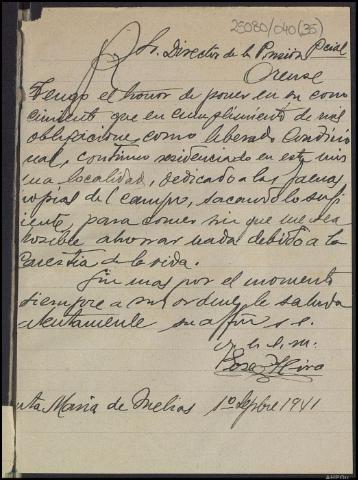 25080/040(35)
Sr. Director de la Prision Pcial
Orense
Tengo el honor de poner en su cono
cimiento que en cumplimiento de mis
obligaciones como liberado Condicio
nal, continuo residenciado en esta mis
ma localidad, dedicado a las faenas
propias del campo, sacando lo sufi
ciente, para comer sin que me sea
posible ahorrar nada debido a la
carestia de la vida.
Sin mas por el momento
siempre a sus ordenes le saluda
atentamente su affmo s. s.
q. b. s. m.
nta Maria de Melias 1º Sepbre 1941
AHPOU